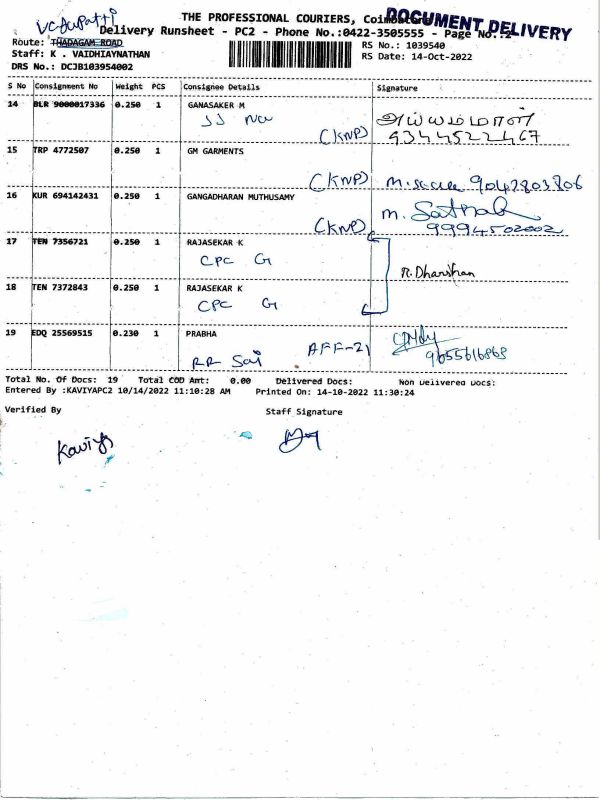 THE PROFESSIONAL COURIERS, Coimbatore
DOCUMENT DELIVERY
Delivery Runsheet - PC2 - Phone No.:0422-3505555 - Page No.:2
Route: THADAGAM ROAD
RS No.: 1039540
Staff: K . VAIDHIAYNATHAN
RS Date: 14-Oct-2022
DRS No.: DCJB103954002
S No Consignment No Weight PCS Consignee Details Signature
14 BLR 9000017336 0.250 1 GANASAKER M
அய்யம்மாள்
JJ
(KNP) 9344522467
15 TRP 4772507 0.250 1 GM GARMENTS
(KNP) 9042803806
16 KUR 694142431 0.250 1 GANGADHARAN MUTHUSAMY
(KNP) 9994502002
17 TEN 7356721 0.250 1 RAJASEKAR K
CPC G
R.Dharshan
18 TEN 7372843 0.250 1 RAJASEKAR K
CPC G
19 EDQ 25569515 0.230 1 PRABHA
RR Sai AFF-21 9655616868
Total No. Of Docs: 19 Total COD Amt: 0.00 Delivered Docs: Non Delivered Docs:
Entered By :KAVIYAPC2 10/14/2022 11:10:28 AM Printed On: 14-10-2022 11:30:24
Verified By Staff Signature
Kaviya